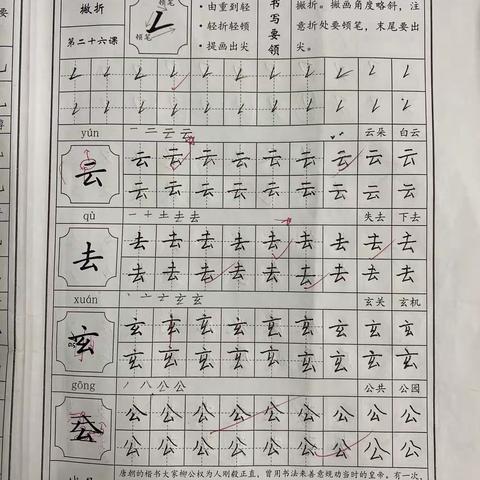 撇折
第二十六课
领笔
领笔
书写要领
• 由重到轻
• 轻折轻领
• 提画出尖
撇折。撇画角度略斜,注
意折处要领笔,末尾要出
尖。
yún 一 二 云 云 云朵 白云
云 云 云 云 云 云 云 云 云 云 云
云 云 云 云 云 云 云 云 云 云
qù 一 十 土 去 去 失去 下去
去 去 去 去 去 去 去 去 去 去 去
去 去 去 去 去 去 去 去 去 去
xuán 玄 玄 玄关 玄机
玄 玄 玄 玄 玄 玄 玄 玄 玄 玄 玄
玄 玄 玄 玄 玄 玄 玄 玄 玄 玄
gōng 丿 八 公 公 公共 公园
公 公 公 公 公 公 公 公 公 公 公
公 公 公 公 公 公 公 公 公 公
唐朝的楷书大家柳公权为人刚毅正直,曾用书法来善意规劝当时的皇帝。有一次,